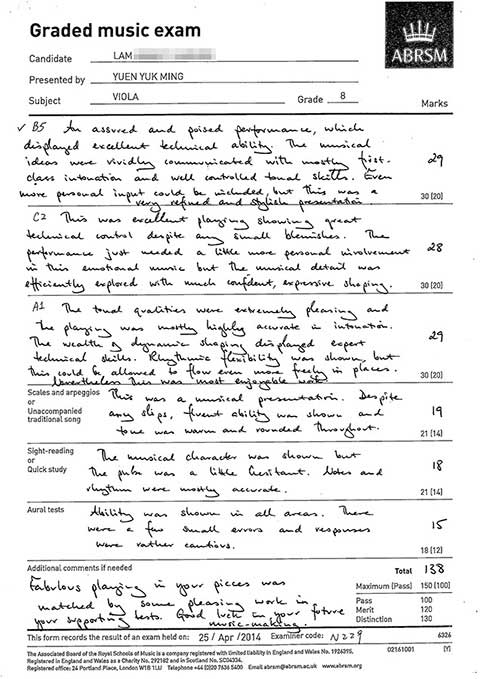 Graded music exam
ABRSM
Candidate LAM
Presented by YUEN YUK MING
Subject VIOLA Grade 8
Marks
✓ B5 An assured and poised performance, which
displayed excellent technical ability. The musical
ideas were vividly communicated with mostly first-
class intonation and well controlled tonal skills. Even
more personal input could be included, but this was a
very refined and stylish presentation.
29
30 (20)
C2 This was excellent playing showing great
technical control despite any small blemishes. The
performance just needed a little more personal involvement
in this emotional music but the musical detail was
efficiently explored with much confident, expressive shaping.
28
30 (20)
A1 The tonal qualities were extremely pleasing and
the playing was mostly highly accurate in intonation.
The wealth of dynamic shaping displayed expert
technical skills. Rhythmic flexibility was shown, but
this could be allowed to flow even more freely in places.
Nevertheless this was most enjoyable work
29
30 (20)
Scales and arpeggios
or
Unaccompanied
traditional song
This was a musical presentation. Despite
any slips, fluent ability was shown and
tone was warm and rounded throughout.
19
21 (14)
Sight-reading
or
Quick study
The musical character was shown but
the pulse was a little hesitant. Notes and
rhythm were mostly accurate.
18
21 (14)
Aural tests
Ability was shown in all areas. There
were a few small errors and responses
were rather cautious.
15
18 (12)
Additional comments if needed
Fabulous playing in your pieces was
matched by some pleasing work in
your supporting tests. Good luck in your future
music-making.
Total 138
Maximum (Pass) 150 (100)
Pass 100
Merit 120
Distinction 130
This form records the result of an exam held on: 25 / Apr / 2014 Examiner code: N229
6326
The Associated Board of the Royal Schools of Music is a company registered with limited liability in England and Wales No. 1926395,
Registered in England and Wales as a Charity No. 292182 and in Scotland No. SC04334.
Registered office: 24 Portland Place, London W1B 1LU Telephone +44 (0)20 7636 5400 Email abrsm@abrsm.ac.uk www.abrsm.org
02161001 [Y]